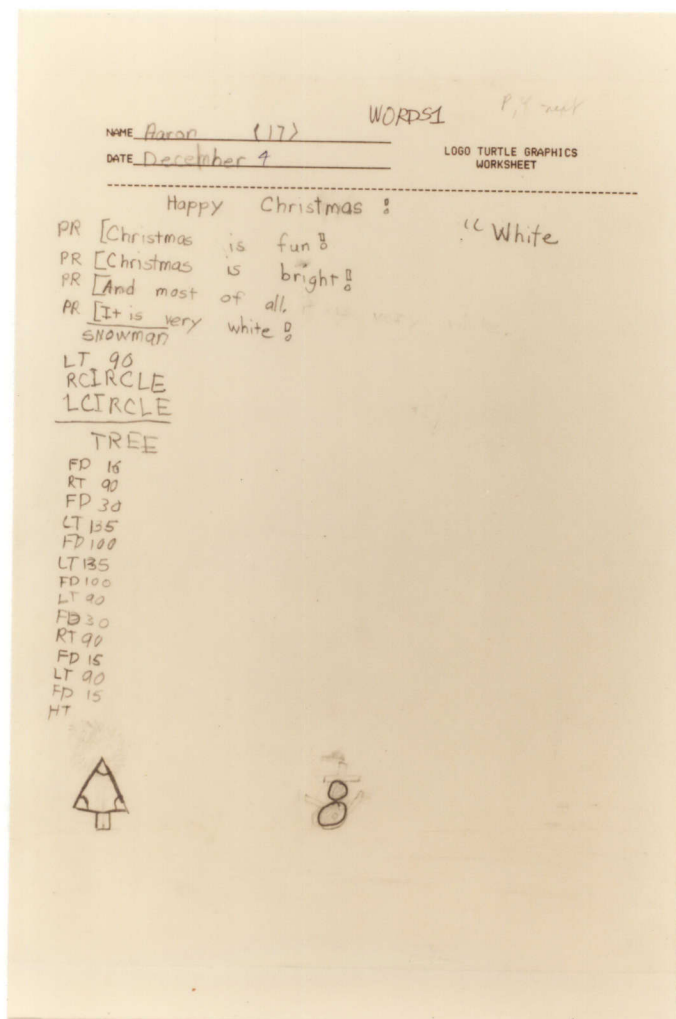 WORDS1
NAME Aaron (17)
DATE December 4
LOGO TURTLE GRAPHICS
WORKSHEET
Happy Christmas !
PR [Christmas is fun!
PR [Christmas is bright!
PR [And most of all.
PR [It is very white!
"White
SNOWMAN
LT 90
RCIRCLE
LCIRCLE
TREE
FD 16
RT 90
FD 30
LT 135
FD 100
LT 135
FD 100
LT 90
FD 30
RT 90
FD 15
LT 90
FD 15
HT